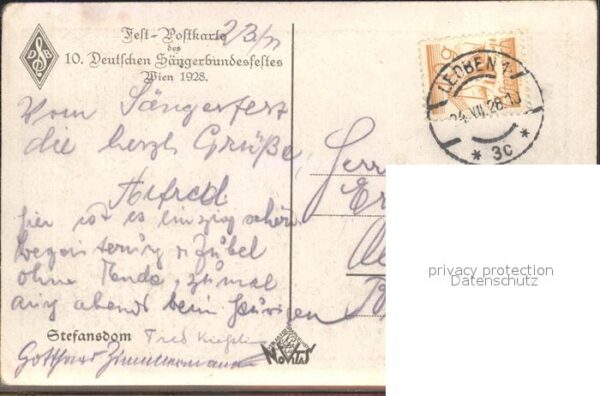 D S B
Fest-Postkarte
des
10. Deutschen Sängerbundesfestes
Wien 1928.
Vom Sängerfest
die herzl. Grüße
Alfred
hier ist es einzig schön
Begeisterung u. Jubel
ohne Ende, zumal
abends beim Heurigen
Stefansdom
Fred
Gotthard Zimmermann
Novitas
LEOBEN 1
24. VII. 28
* 3c *
Herr
privacy protection
Datenschutz